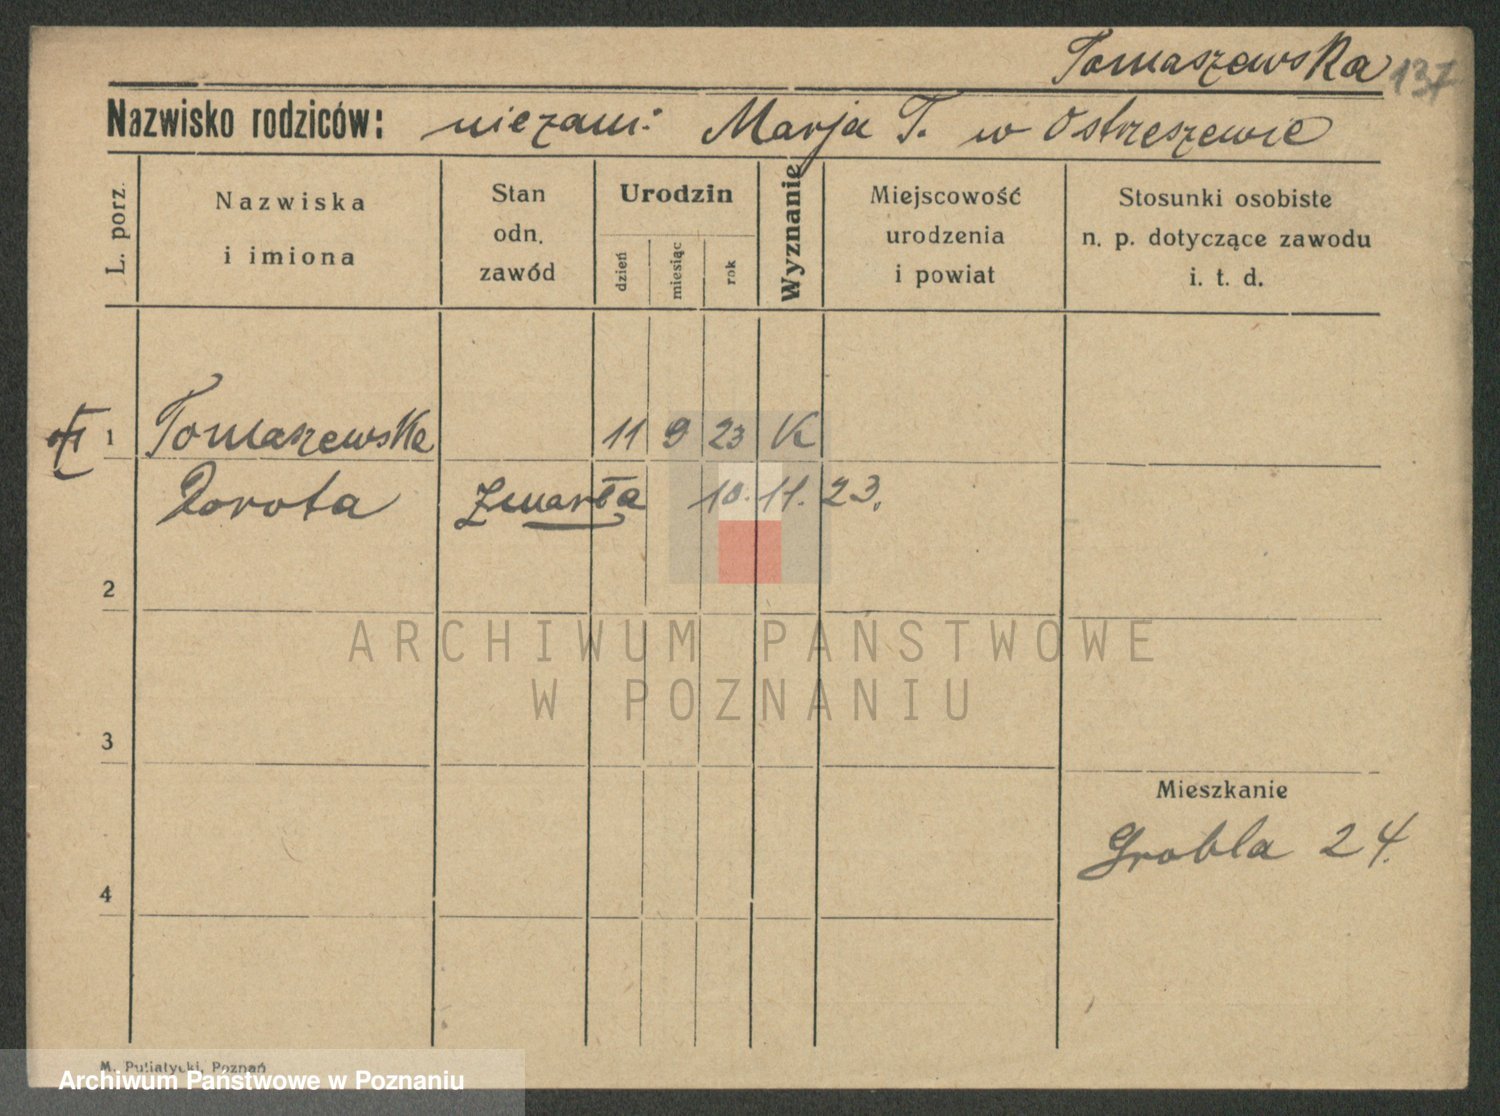 Tomaszewska 137
Nazwisko rodziców: niezam: Marja T. w Ostrzeszewie
L. porz.
Nazwiska
i imiona
Stan
odn.
zawód
Urodzin
dzień
miesiąc
rok
Wyznanie
Miejscowość
urodzenia
i powiat
Stosunki osobiste
n. p. dotyczące zawodu
i. t. d.
1 Tomaszewska 11 9 23 K
Dorota Zmarła 10. 11. 23.
2
3
4
Mieszkanie
Grobla 24.
ARCHIWUM PAŃSTWOWE
W POZNANIU
M. Putiatycki, Poznań
Archiwum Państwowe w Poznaniu